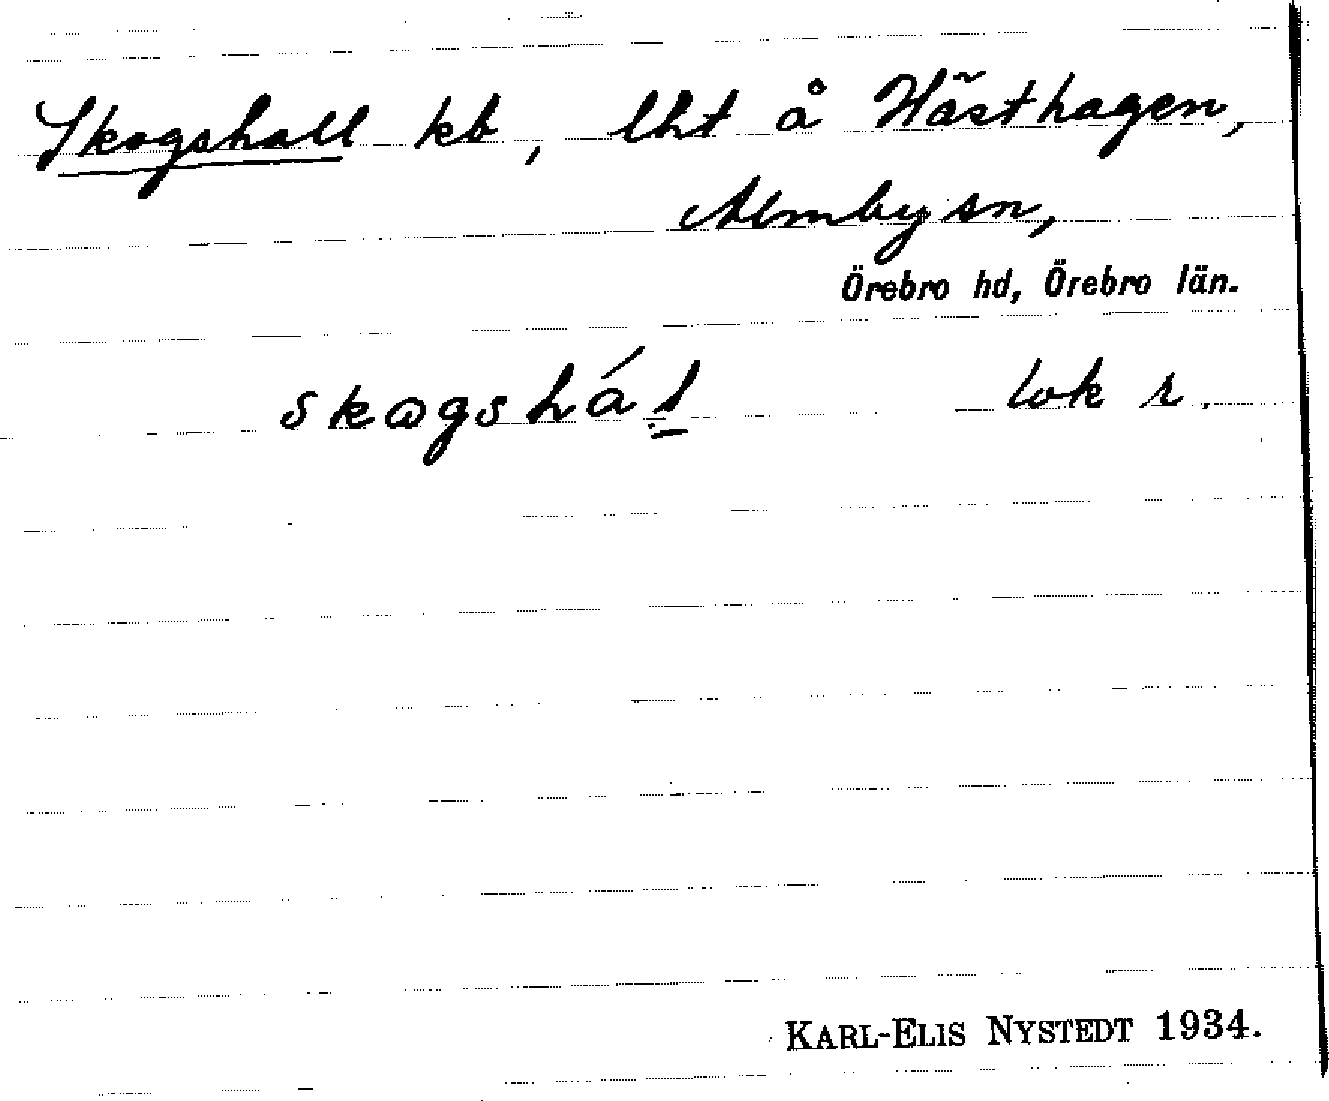 Skogshall kb, lht å Hästhagen,
Almby sn,
Örebro hd, Örebro län.
skogshál lok r.
KARL-ELIS NYSTEDT 1934.